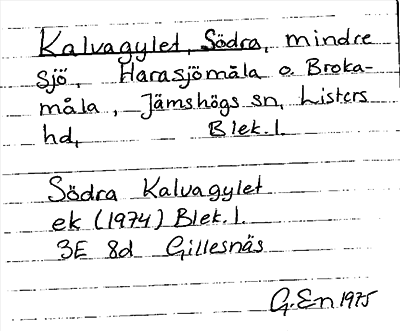 Kalvagylet, Södra, mindre
sjö, Harasjömåla o. Broka-
måla, Jämshögs sn, Listers
hd, Blek. l.
Södra Kalvagylet
ek (1974) Blek. l.
3E 8d Gillesnäs
G. En 1975